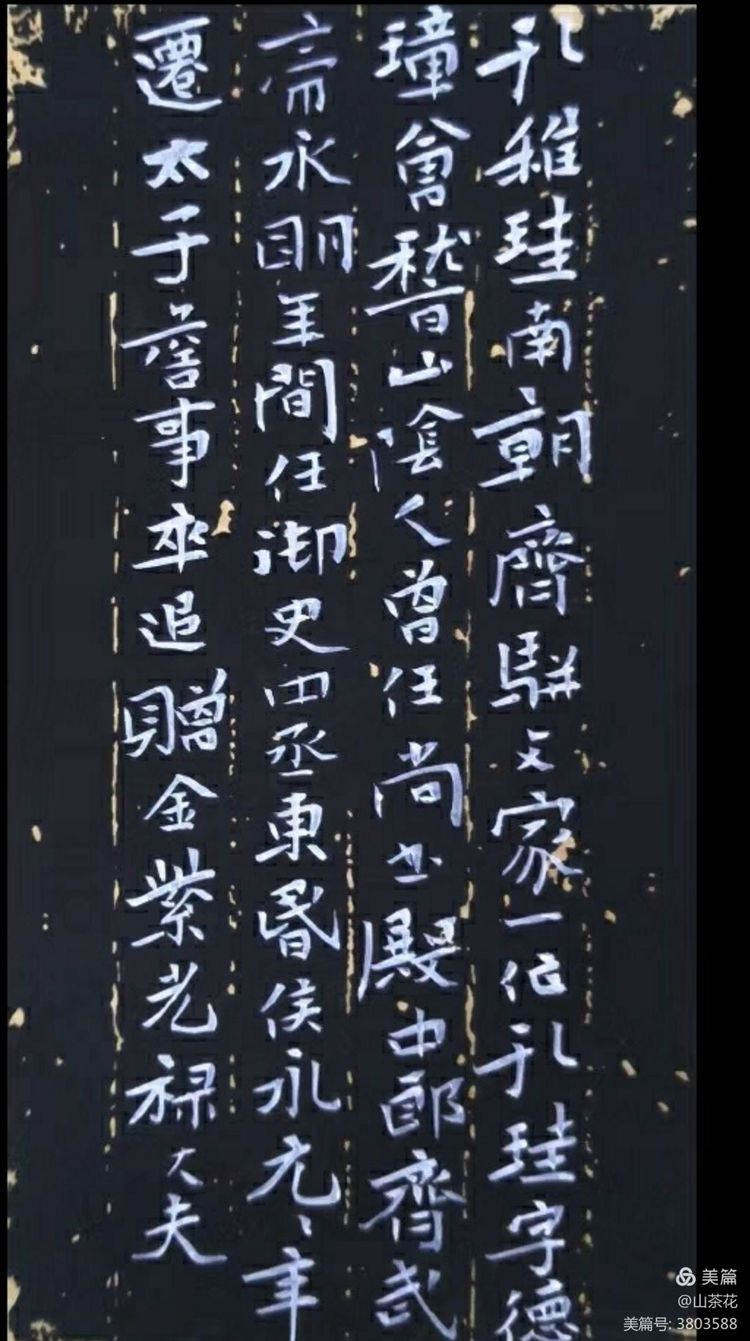 孔稚珪南朝齊駢文家一作孔珪字德
璋會稽山陰人曾任尚书殿中郎齊武
帝永明年間任御史中丞東昏侯永元、年
遷太子詹事卒追贈金紫光禄大夫
美篇
@山茶花
美篇号: 3803588